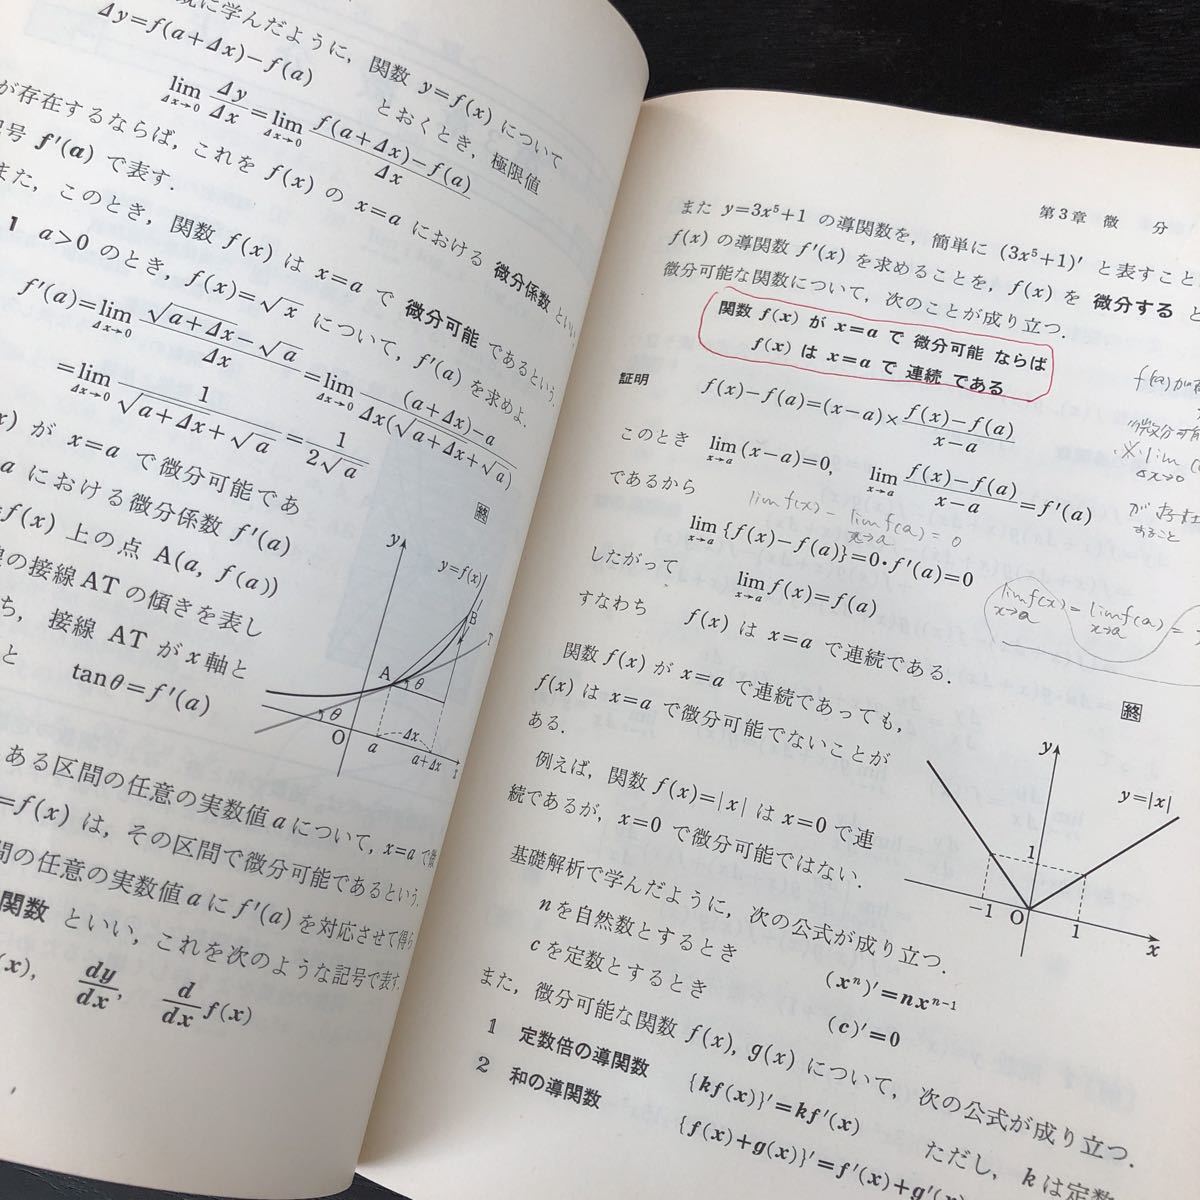 既に学んだように，関数 y=f(x) について
Δy=f(a+Δx)−f(a) とおくとき，極限値
lim Δx→0 Δy/Δx=lim Δx→0 f(a+Δx)−f(a)/Δx
が存在するならば，これを f(x) の x=a における 微分係数 といい，
記号 f′(a) で表す．
また，このとき，関数 f(x) は x=a で 微分可能 であるという．
1 a>0 のとき，f(x)=√x について，f′(a) を求めよ．
f′(a)=lim Δx→0 √a+Δx−√a/Δx=lim Δx→0 (a+Δx)−a/Δx(√a+Δx+√a)
=lim Δx→0 1/√a+Δx+√a=1/2√a 終
(x) が x=a で微分可能であ
a における微分係数 f′(a)
=f(x) 上の点 A(a, f(a))
線の接線AT の傾きを表し
ち，接線 AT が x軸と
と tanθ=f′(a)
y
y=f(x)
B
T
A
θ
θ
O
a
Δx
a+Δx
x
ある区間の任意の実数値 a について，x=a で微
=f(x) は，その区間で微分可能であるという．
間の任意の実数値 a に f′(a) を対応させて得ら
関数 といい，これを次のような記号で表す．
(x)， dy/dx， d/dx f(x)
第3章 微 分
また y=3x⁵+1 の導関数を，簡単に (3x⁵+1)′ と表すこと
f(x) の導関数 f′(x) を求めることを，f(x) を 微分する と
微分可能な関数について，次のことが成り立つ．
関数 f(x) が x=a で 微分可能 ならば
f(x) は x=a で 連続 である
証明 f(x)−f(a)=(x−a)×f(x)−f(a)/x−a
このとき lim x→a (x−a)=0, lim x→a f(x)−f(a)/x−a=f′(a)
であるから
lim f(x)− lim x→a f(a)=0
lim x→a {f(x)−f(a)}=0·f′(a)=0
したがって lim x→a f(x)=f(a)
すなわち f(x) は x=a で連続である． 終
微分可
※ lim Δx→0
が存在
すること
lim x→a f(x)=lim x→a f(a)=
関数 f(x) が x=a で連続であっても，
f(x) は x=a で微分可能でないことが
ある．
例えば，関数 f(x)=|x| は x=0 で連
続であるが，x=0 で微分可能ではない．
y
y=|x|
1
−1
O
1
x
基礎解析で学んだように，次の公式が成り立つ．
nを自然数とするとき (xⁿ)′=nxⁿ⁻¹
cを定数とするとき (c)′=0
また，微分可能な関数 f(x), g(x) について，次の公式が成り立つ．
1 定数倍の導関数 {kf(x)}′=kf′(x) ただし，kは定数
2 和の導関数 {f(x)+g(x)}′=f′(x)+g′(x)